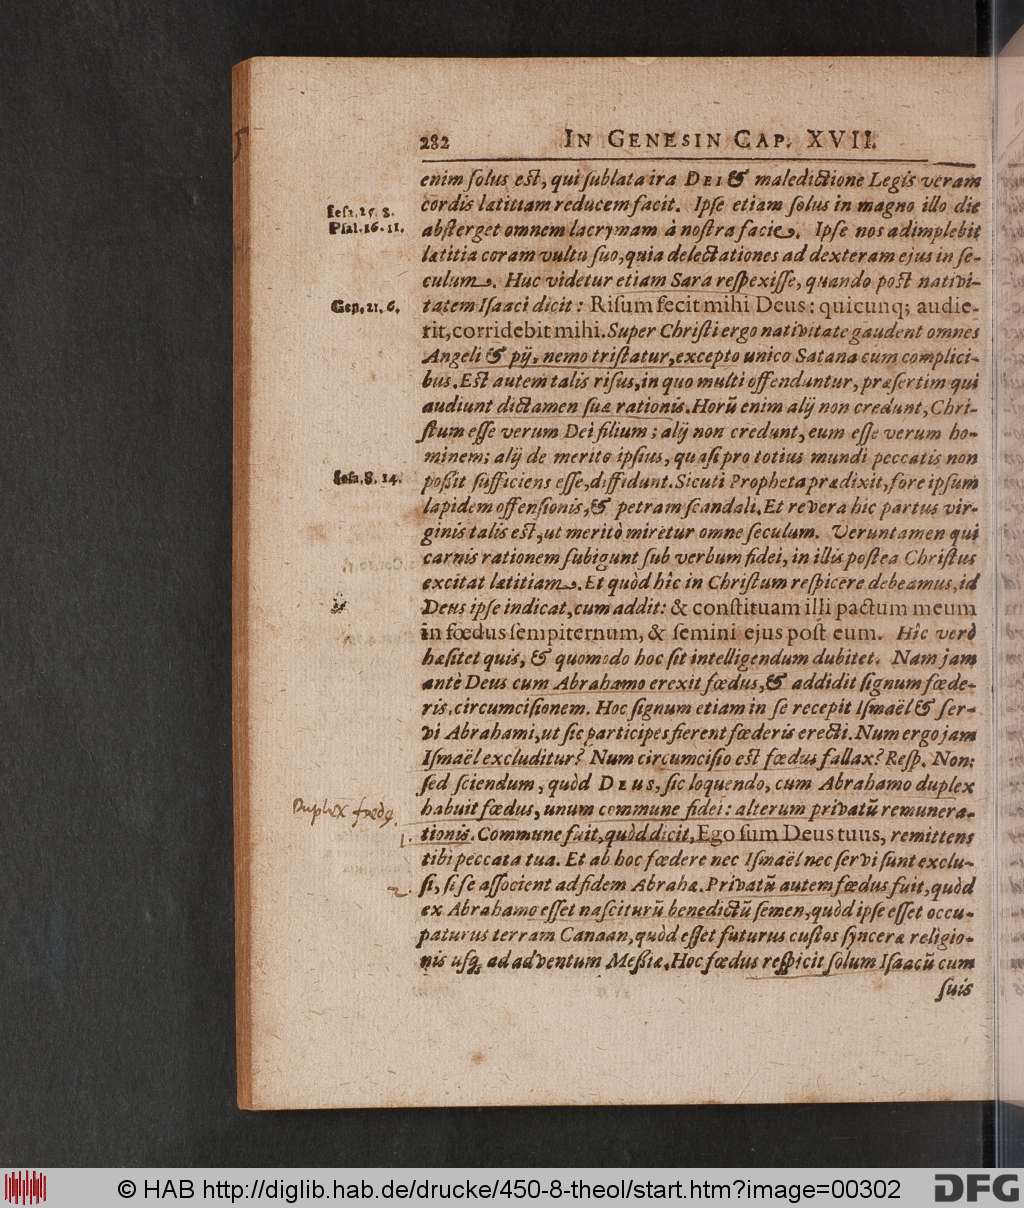 282 IN GENESIN CAP. XVII.
enim ſolus eſt, qui ſublata ira DEI & maledictione Legis veram
cordis lætitiam reducem facit. Ipſe etiam ſolus in magno illo die
Ieſa. 25. 8.
Pſal. 16. 11.
abſterget omnem lacrymam à noſtra facie. Ipſe nos adimplebit
lætitia coram vultu ſuo, quia delectationes ad dexteram ejus in ſe-
culum. Huc videtur etiam Sara reſpexiſſe, quando poſt nativi-
Gen. 21. 6.
tatem Iſaaci dicit: Riſum fecit mihi Deus: quicunq; audie-
rit, corridebit mihi. Super Chriſti ergo nativitate gaudent omnes
Angeli & pij, nemo triſtatur, excepto unico Satana cum complici-
bus. Eſt autem talis riſus, in quo multi offenduntur, præſertim qui
audiunt dictamen ſuæ rationis. Horũ enim alij non credunt, Chri-
ſtum eſſe verum Dei filium; alij non credunt, eum eſſe verum ho-
minem; alij de merito ipſius, quaſi pro totius mundi peccatis non
Ieſa. 8. 14.
poſſit ſufficiens eſſe, diffidunt. Sicuti Propheta prædixit, fore ipſum
lapidem offenſionis, & petram ſcandali. Et revera hic partus vir-
ginis talis eſt, ut meritò miretur omne ſeculum. Veruntamen qui
carnis rationem ſubigunt ſub verbum fidei, in illis poſtea Chriſtus
excitat lætitiam. Et quòd hîc in Chriſtum reſpicere debeamus, id
Deus ipſe indicat, cum addit: & conſtituam illi pactum meum
in fœdus ſempiternum, & ſemini ejus poſt eum. Hîc verò
hæſitet quis, & quomodo hoc ſit intelligendum dubitet. Nam jam
antè Deus cum Abrahamo erexit fœdus, & addidit ſignum fœde-
ris, circumciſionem. Hoc ſignum etiam in ſe recepit Iſmaël & ſer-
vi Abrahami, ut ſic participes fierent fœderis erecti. Num ergo jam
Iſmaël excluditur? Num circumciſio eſt fœdus fallax? Reſp. Non:
ſed ſciendum, quòd DEUS, ſic loquendo, cum Abrahamo duplex
Duplex fœdꝯ.
habuit fœdus, unum commune fidei: alterum privatũ remunera-
1.
tionis. Commune fuit, quòd dicit, Ego ſum Deus tuus, remittens
tibi peccata tua. Et ab hoc fœdere nec Iſmaël nec ſervi ſunt exclu-
2.
ſi, ſi ſe aſſocient ad fidem Abrahæ. Privatũ autem fœdus fuit, quòd
ex Abrahamo eſſet naſciturũ benedictũ ſemen, quòd ipſe eſſet occu-
paturus terram Canaan, quòd eſſet futurus cuſtos ſynceræ religio-
nis uſq; ad adventum Meſſiæ. Hoc fœdus reſpicit ſolum Iſaacũ cum
ſuis
© HAB http://diglib.hab.de/drucke/450-8-theol/start.htm?image=00302
DFG